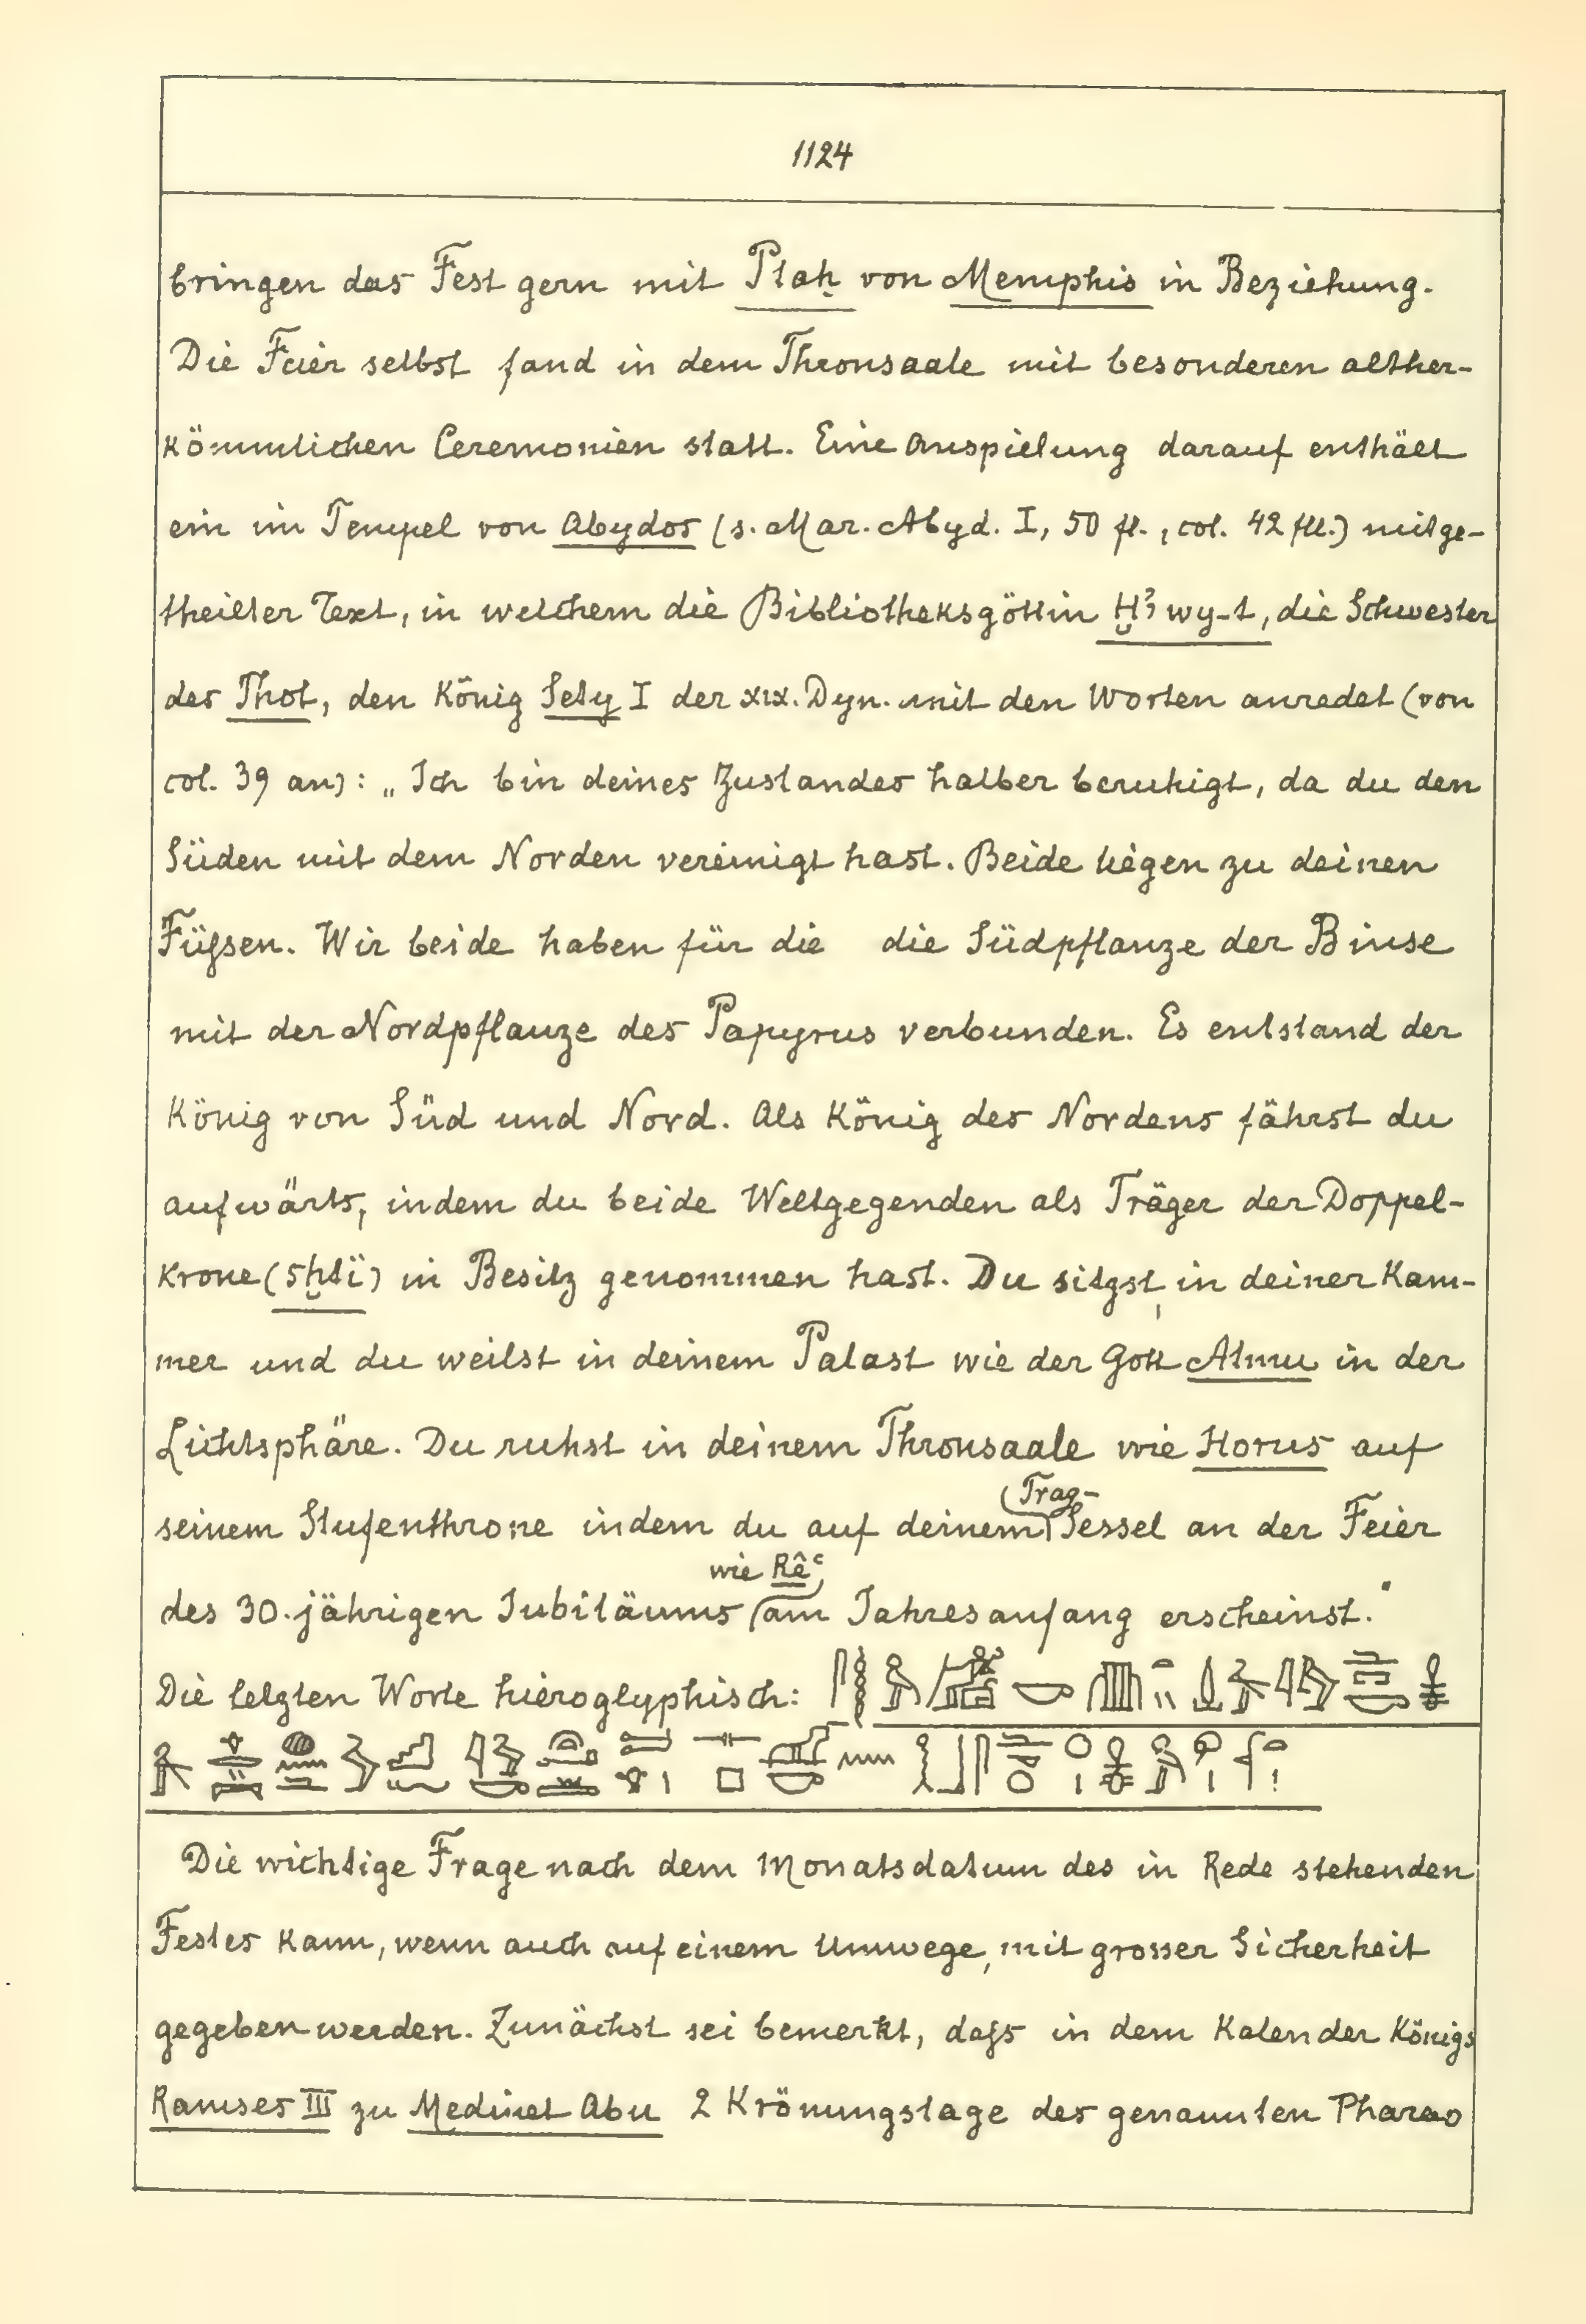 1124
bringen das Fest gern mit Ptaḥ von Memphis in Beziehung.
Die Feier selbst fand in dem Thronsaale mit besonderen alther-
kömmlichen Ceremonien statt. Eine Anspielung darauf enthält
ein im Tempel von Abydos (s. Mar. Abyd. I, 50 fl., col. 42 fll.) mitge-
theilter Text, in welchem die Bibliotheksgöttin Ḫꜣwy-t, die Schwester
des Thot, den König Sety I der XIX. Dyn. mit den Worten anredet (von
col. 39 an): „Ich bin deines Zustandes halber beruhigt, da du den
Süden mit dem Norden vereinigt hast. Beide liegen zu deinen
Füſsen. Wir beide haben für die die Südpflanze der Binse
mit der Nordpflanze des Papyrus verbunden. Es entstand der
König von Süd und Nord. Als König des Nordens fährst du
aufwärts, indem du beide Weltgegenden als Träger der Doppel-
krone (sḫtï) in Besitz genommen hast. Du sitzst, in deiner Kam-
mer und du weilst in deinem Palast wie der Gott Atmu in der
Lichtsphäre. Du ruhst in deinem Thronsaale wie Horus auf
seinem Stufenthrone indem du auf deinem (Trag-) Sessel an der Feier
des 30.jährigen Jubiläums wie Rêꜥ, am Jahresanfang erscheinst."
Die letzten Worte hieroglyphisch:
Die wichtige Frage nach dem Monatsdatum des in Rede stehenden
Festes kann, wenn auch auf einem Umwege, mit grosser Sicherheit
gegeben werden. Zunächst sei bemerkt, daſs in dem Kalender Königs
Ramses III zu Medinet Abu 2 Krönungstage des genannten Pharao